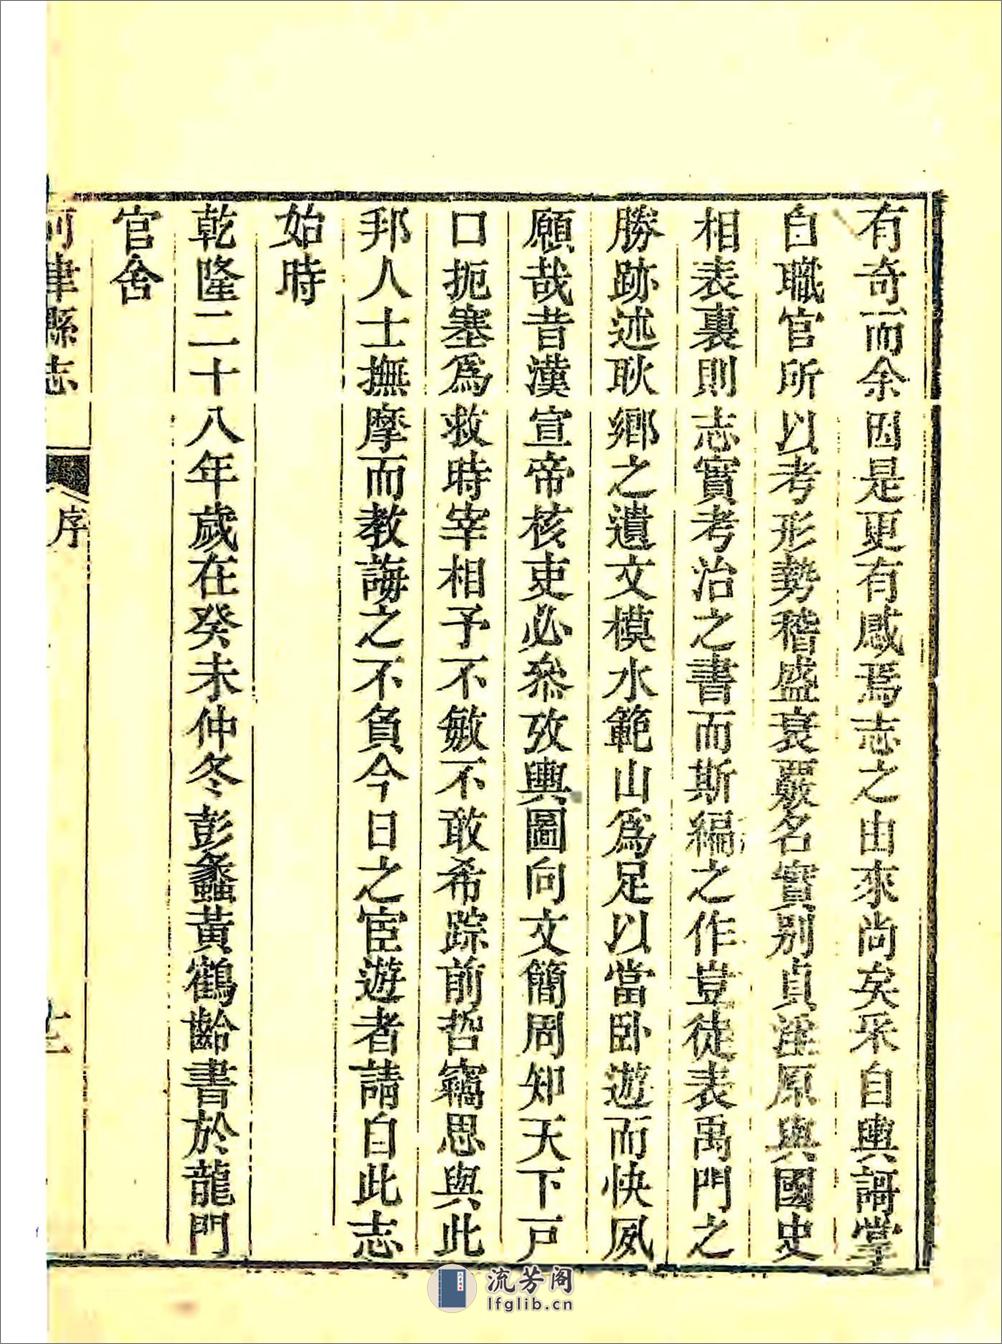 有奇而余因是更有感焉志之由來尚矣采自輿謌掌
自職官所以考形勢稽盛衰嚴名實別貞淫原與國史
相表裏則志實考治之書而斯編之作豈徒表禹門之
勝跡述耿鄉之遺文模水範山爲足以當卧遊而快夙
願哉昔漢宣帝核吏必叅攷輿圖向文簡周知天下戸
口扼塞爲救時宰相予不敏不敢希踪前哲竊思與此
邦人士撫摩而教誨之不負今日之宦遊者請自此志
始時
乾隆二十八年歲在癸未仲冬彭蠡黃鶴齡書於龍門
官舍
河津縣志
序
流芳阁
lfglib.cn